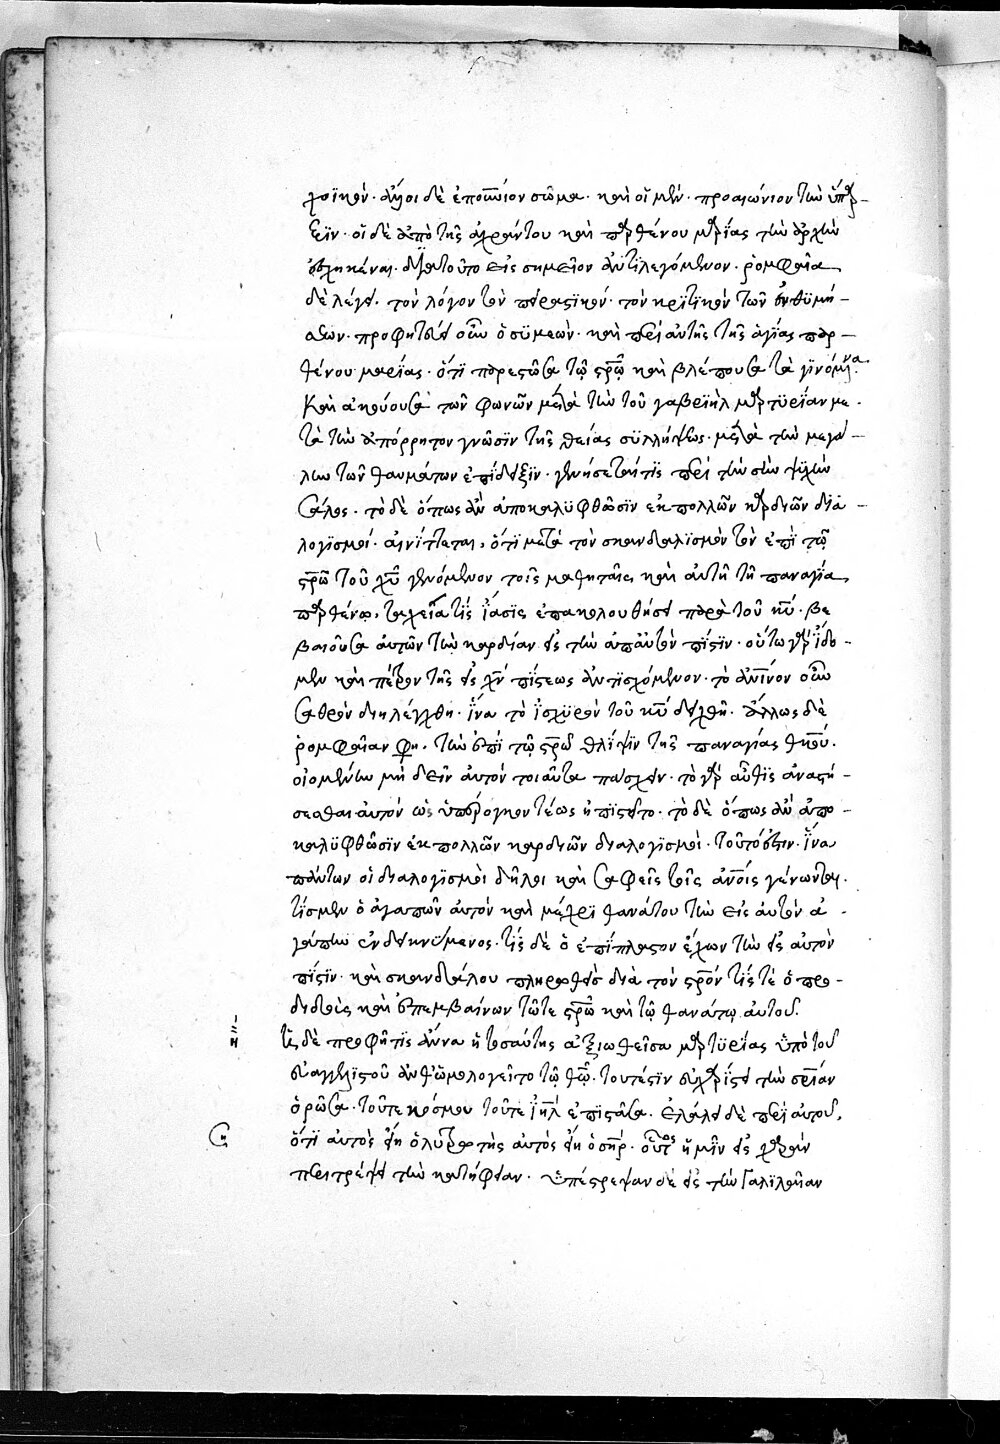 χοϊκόν· ἄλλοι δὲ ἐπουράνιον σῶμα· καὶ οἱ μὲν· προαιώνιον τὴν ὕπαρ-
ξιν· οἱ δὲ ἀπὸ τῆς ἀχράντου καὶ παρθένου μαρίας τὴν ἀρχὴν
ἐσχηκέναι· διὰ τοῦτο εἰς σημεῖον ἀντιλεγόμενον· ῥομφαία
δὲ λέγει τὸν λόγον τὸν πειραστικόν· τὸν κριτικὸν τῶν ἐνθυμή-
σεων· προφητεύει οὖν ὁ συμεών· καὶ περὶ αὐτῆς τῆς ἁγίας παρ-
θένου μαρίας· ὅτι παρεστῶσα τῷ στρῷ καὶ βλέπουσα τὰ γινόμενα·
καὶ ἀκούουσα τῶν φωνῶν μετὰ τὴν τοῦ γαβριὴλ μαρτυρίαν με-
τὰ τὴν ἀπόρρητον γνῶσιν τῆς θείας συλλήψεως· μετὰ τὴν μεγά-
λην τῶν θαυμάτων ἐπίδειξιν· γενήσεταί τις περὶ τὴν σὴν ψυχὴν
σάλος· τὸ δὲ ὅπως ἂν ἀποκαλυφθῶσιν ἐκ πολλῶν καρδιῶν δια-
λογισμοί· αἰνίττεται, ὅτι μετὰ τὸν σκανδαλισμὸν τὸν ἐπὶ τῷ
στρῷ τοῦ χυ γενόμενον τοῖς μαθηταῖς, καὶ αὐτῇ τῇ παναγίᾳ
παρθένῳ, ταχεῖά τις ἴασις ἐπακολουθήσει παρὰ τοῦ κυ· βε
βαιοῦσα αὐτῶν τὴν καρδίαν εἰς τὴν αὐτὸν πίστιν· οὕτω γὰρ ἴδο-
μεν καὶ πέτρον τῆς εἰς χν πίστεως ἀντισχόμενον· τὸ ἀνινον οὖν
σαθρὸν διηλέγχθη· ἵνα τὸ ἰσχυρὸν τοῦ κυ δειχθῇ· ἄλλως δὲ
ῥομφαίαν φη, τὴν ἐπὶ τῷ στρῷ θλίψιν τῆς παναγίας θκου·
οἰομένην μὴ δεῖν αὐτὸν τοιαῦτα πάσχειν· τὸ γὰρ αὖθις ἀναστή-
σεσθαι αὐτὸν ὡς ὑπέρογκον τέως ἠπίστει τὸ δὲ ὅπως ἂν ἀπο-
καλυφθῶσιν ἐκ πολλῶν καρδιῶν διαλογισμοί· τοῦτό ἐστιν· ἵνα
πάντων οἱ διαλογισμοὶ δῆλοι καὶ σαφεῖς τοῖς ἀνοις γένωνται·
τίς μὲν ὁ ἀγαπῶν αὐτὸν καὶ μέχρι θανάτου τὴν εἰς αὐτὸν ἀ-
γάπην ἐνδεικνύμενος· τίς δὲ ὁ ἐπίπλαστον ἔχων τὴν εἰς αὐτὸν
πίστιν· καὶ σκανδάλου πληρωθεὶς διὰ τὸν στρόν τίς τε ὁ προ-
διδοὺς καὶ ἐπεμβαίνων τῷ τε στρῷ καὶ τῷ θανάτῳ αὐτοῦ.
ἡ δὲ προφῆτις ἄννα ἡ τοσαύτης ἀξιωθεῖσα μαρτυρίας ὑπὸ τοῦ
εὐαγγελιστοῦ ἀνθωμολογεῖτο τῷ θῷ· τουτέστιν εὐχαρίστει τὴν σρίαν
ὁρῶσα· τοῦ τε κόσμου τοῦ τε ἰηλ ἐπιστᾶσα· ἐλάλει δὲ περὶ αὐτοῦ,
ὅτι αὐτὸς εἴη ὁ λυτρωτὴς αὐτὸς εἴη ὁ σηρ· οὗτος ἡμῖν εἰς χαρὰν
περιτρέψει τὴν κατήφειαν· ὑπέστρεψαν δὲ εἰς τὴν γαλιλαίαν